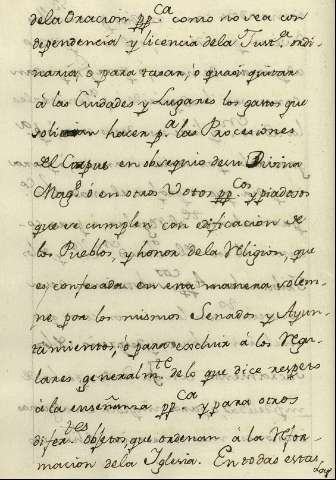 dela Oracion pp.ca como no sea con
dependencia, y licencia dela Just.a ordi
naria, ó para tasar, ó quasi quitar
à las Ciudades y Lugares los gastos que
hacen p.a las Procesiones
del Corpus en obsequio desu Divina
Mag.d ó en otros Votos pp.cos y piadosos
que se cumplen con edificacion de
los Pueblos, y honor dela Religion, que
es confesada en esta manera solem-
ne por los mismos Senados y Ayun-
tamientos, ó para excluir á los Regu-
lares generalm.te de lo que dice respeto
á la enseñanza pp.ca y para otros
difer.tes objetos, que ordenan à la Refor-
macion dela Iglesia. En todas estas